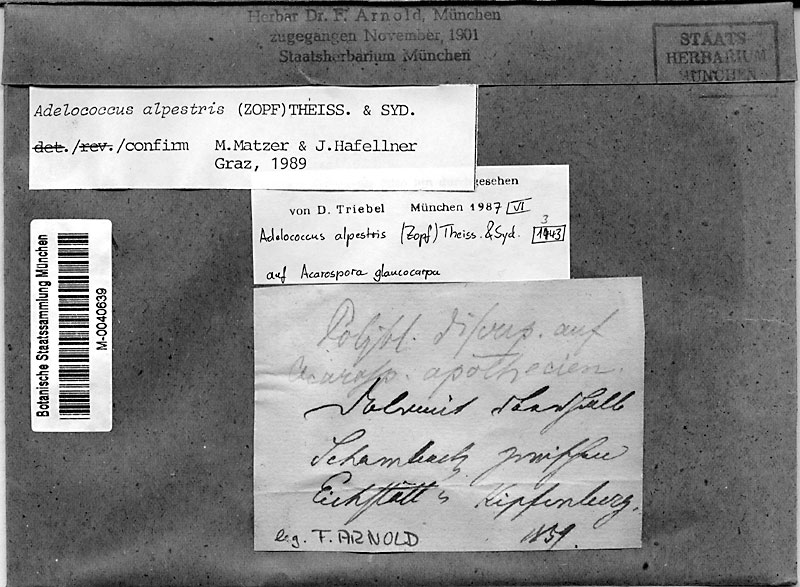 Herbar Dr. F. Arnold, München
zugegangen November, 1901
Staatsherbarium München
STAATS
HERBARIUM
MÜNCHEN
Adelococcus alpestris (ZOPF)THEISS. & SYD.
det./rev./confirm M.Matzer & J.Hafellner
Graz, 1989
gesehen
von D. Triebel München 1987 VI
Adelococcus alpestris (Zopf) Theiss. & Syd. 3
auf Acarospora glaucocarpa
Botanische Staatssammlung München
M-0040639
Polybl. auf
apothecien.
Dolomit oberhalb
Schambach zwischen
Eichstätt u Kipfenberg.
1859.
leg. F. ARNOLD